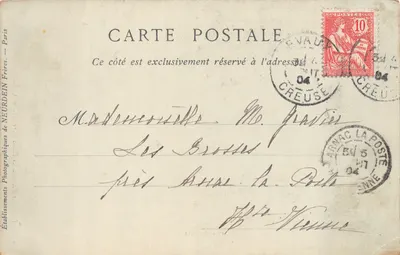 CARTE POSTALE
Ce côté est exclusivement réservé à l'adresse
10
POSTES
EVAUX
04
CREUSE
04
CREUSE
Mademoiselle M.
Les Brosses
près la Poste
Hte Vienne
ARNAC LA POSTE
04
ENNE
Etablissements Photographiques de NEURDEIN Frères. — Paris